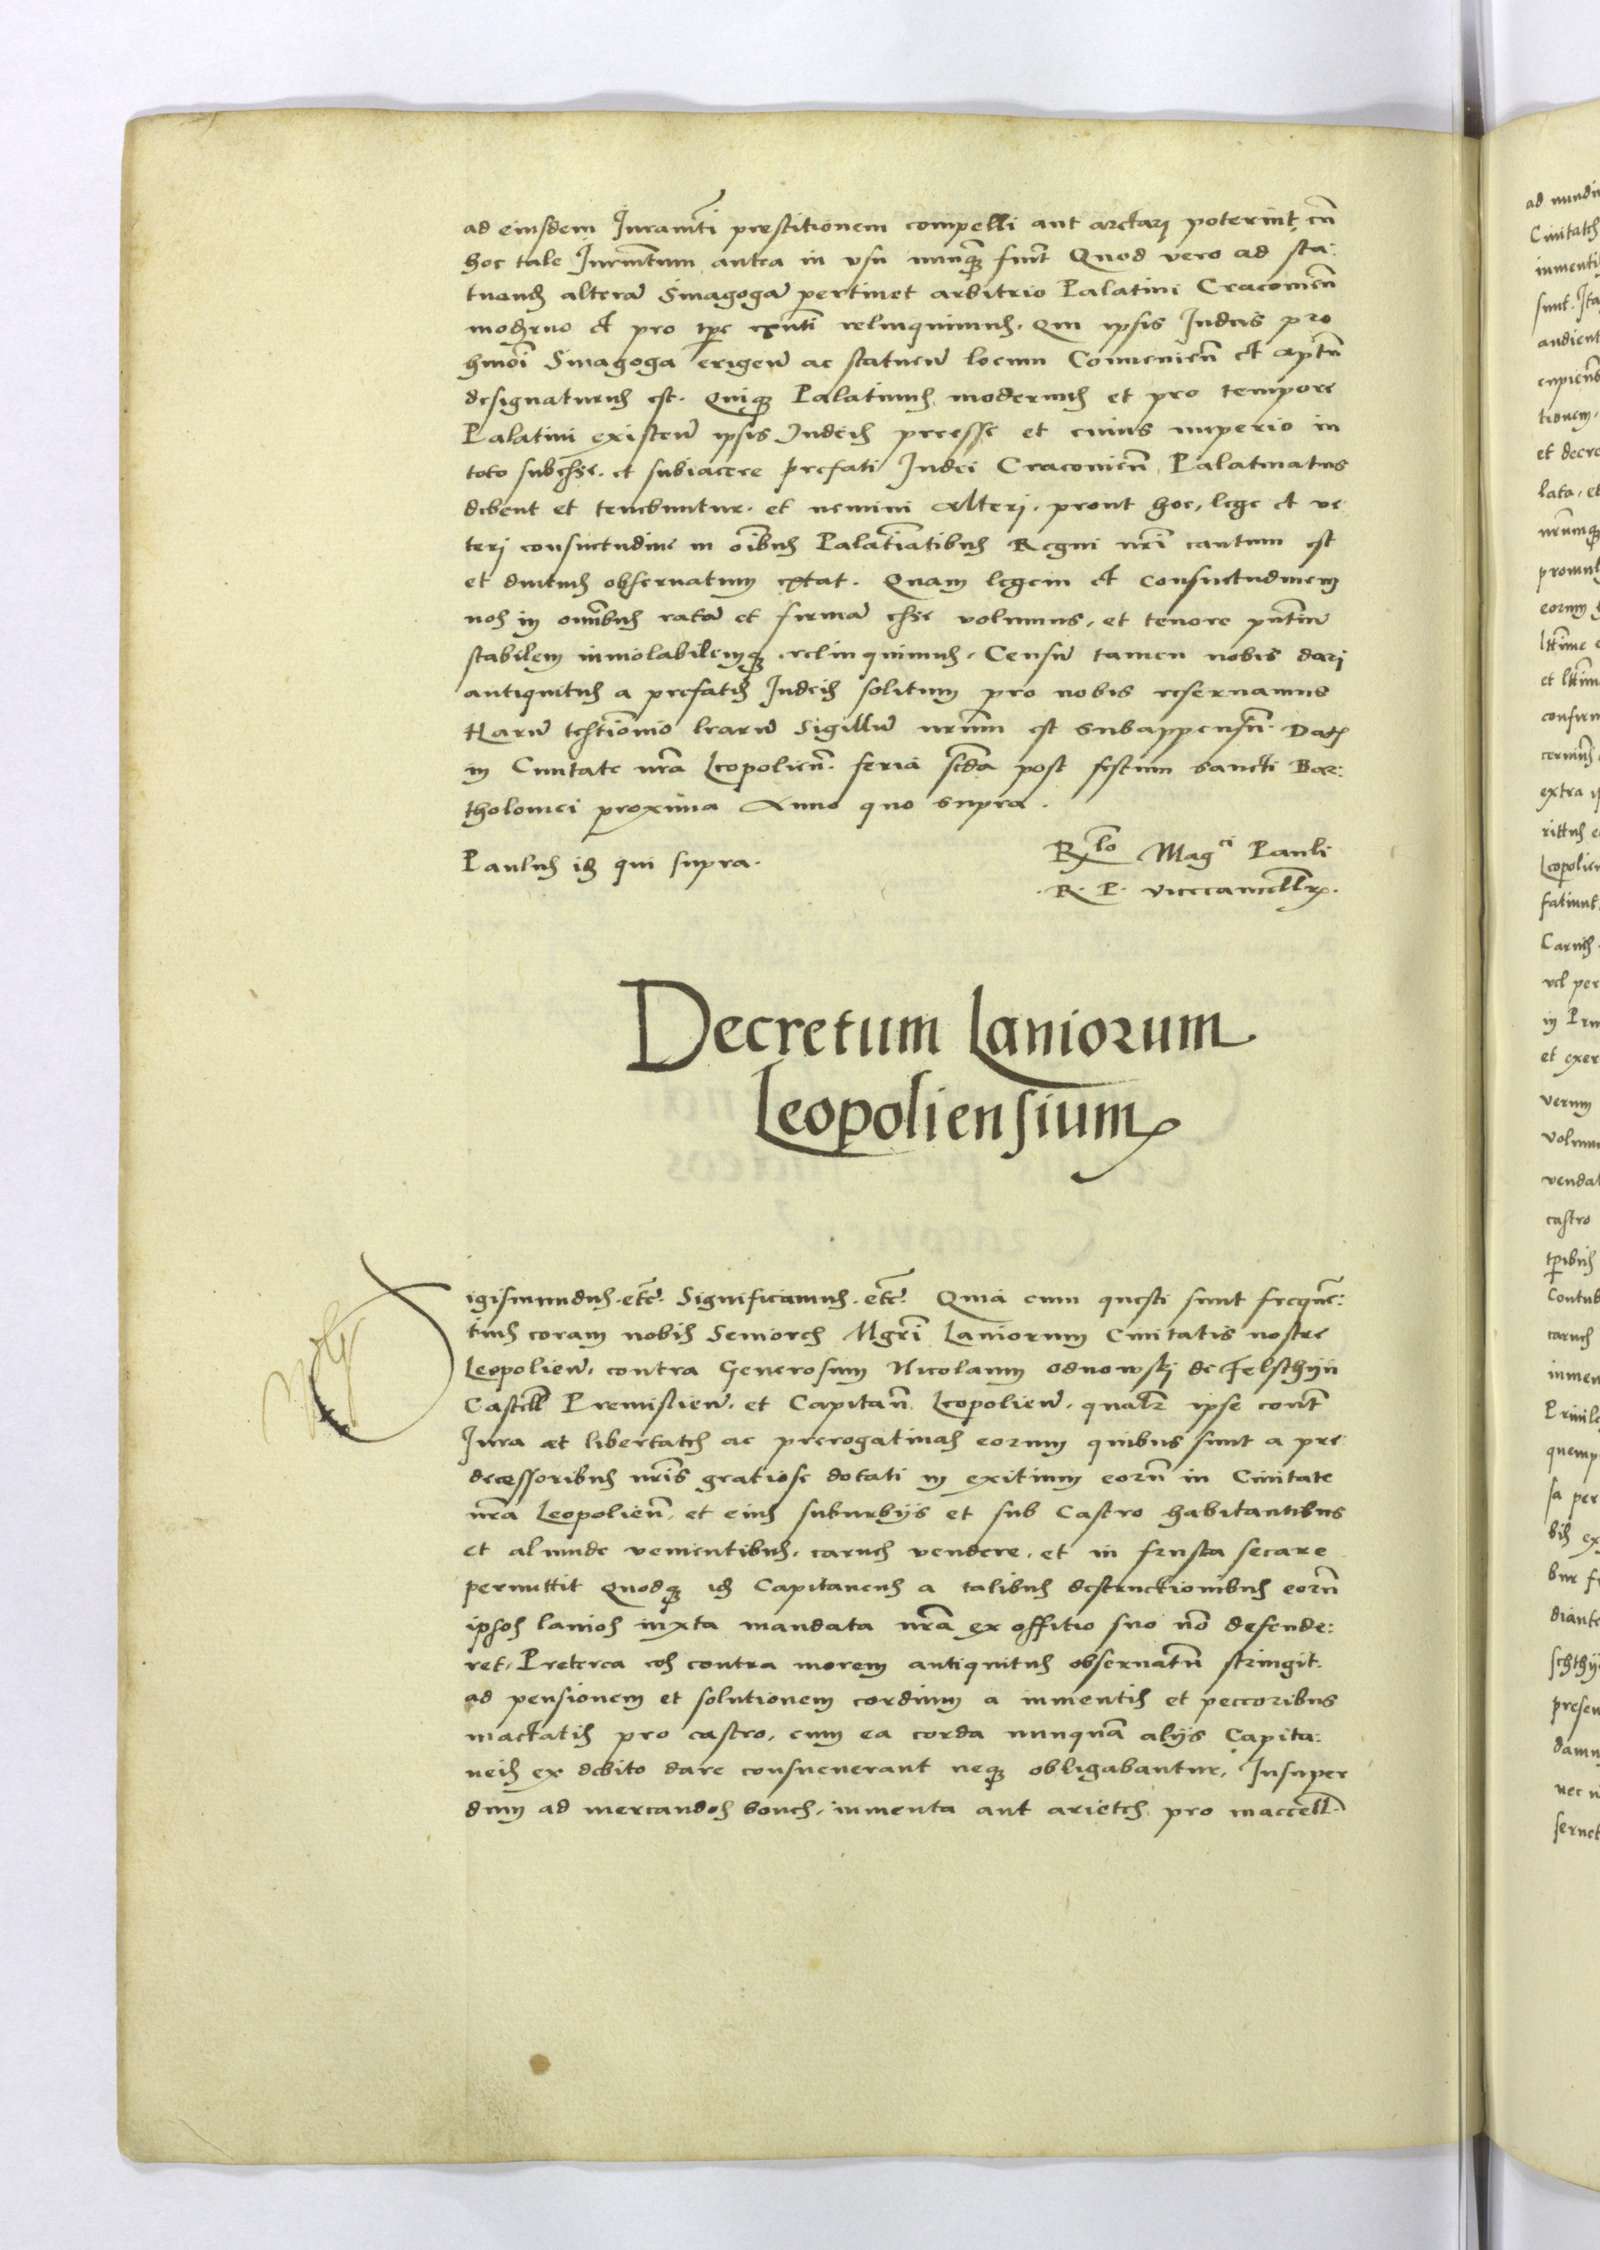 ad eiusdem Iuramēti prestitionem compelli aut arctari poterint, cū
hoc tale Iurmētum antea in vsu nunq̄ fuit Quod vero ad sta:
tuend alterā Sinagogā pertinet arbitrio Palatini Cracovieñ
moderno et pro tp̄e exn̄ti relinquimus. Qui ipsis Iudeis pro
hmōi Sinagoga erigeñ ac statueñ locum Convenieñ et aptū
designaturus est. Quiq Palatinus modernus et pro tempore
Palatini existeñ ipsis Iudeis preesse et cuius imperio in
toto subesse. et subiacere prefati Iudei Cracovieñ Palatinatus
debent et tenebuntur. et nemini alteri. prout hoc, lege et ve
teri consuetudine in oībus Palatīatibus Regni nrī cautum est
et diutius observatum extat. Quam legem et consuetudinem
nos in omībus ratā et firmā esse volumus, et tenore pn̄tiū
stabilem inviolabilemq relinquimus. Censū tamen nobis dari
antiquitus a prefatis Iudeis solitum pro nobis reservamus
Harū testīonio lrarū Sigillū nrūm est subappensū. Datf
in Civitate nrā Leopolieñ. feria scd̄a post festum sancti Bar:
tholomei proxima Anno quo supra.
Paulus id qui supra.
Rlo Magci Pauli
R. P. vicecancellr.
Decretum Laniorum
Leopoliensium
igismundus. etc̄. Significamus. etc̄. Quia cum questi sunt frequē:
tius coram nobis Seniores Mgrī Laniorum Civitatis nostre
Leopolieñ, contra Generosum Nicolaum Odnowski de Felschtyn
Castell Premislieñ. et Capitañ Leopolieñ, qualr ipse cont
Iura et libertates ac prerogativas eorum quibus sunt a pre
decessoribus nrīs gratiose dotati in exitium eorū in Civitate
nrā Leopolieñ, et eius suburbijs et sub Castro habitantibus
et aliunde venientibus. carnes vendere, et in frusta secare
permittit Quodq id Capitaneus a talibus destructionibus eorū
ipsos lanios iuxta mandata nrā ex offitio suo nō defende:
ret. Preterea eos contra morem antiquitus observatū stringit
ad pensionem et solutionem cordium a iumentis et peccoribus
mactatis pro castro, cum ea corda nunquā alijs Capita:
neis ex debito dare consueverant neq obligabantur, Insuper
dum ad mercandos boves, iumenta aut arietes pro maccell